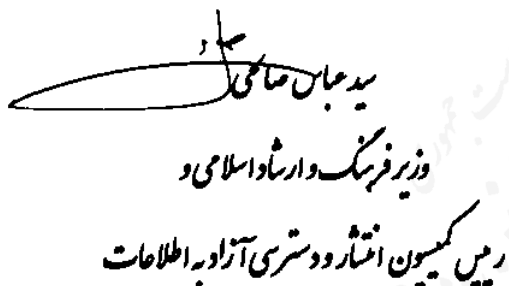 سید عباس صالحی
وزیر فرهنگ و ارشاد اسلامی و
رییس کمیسیون انتشار و دسترسی آزاد به اطلاعات